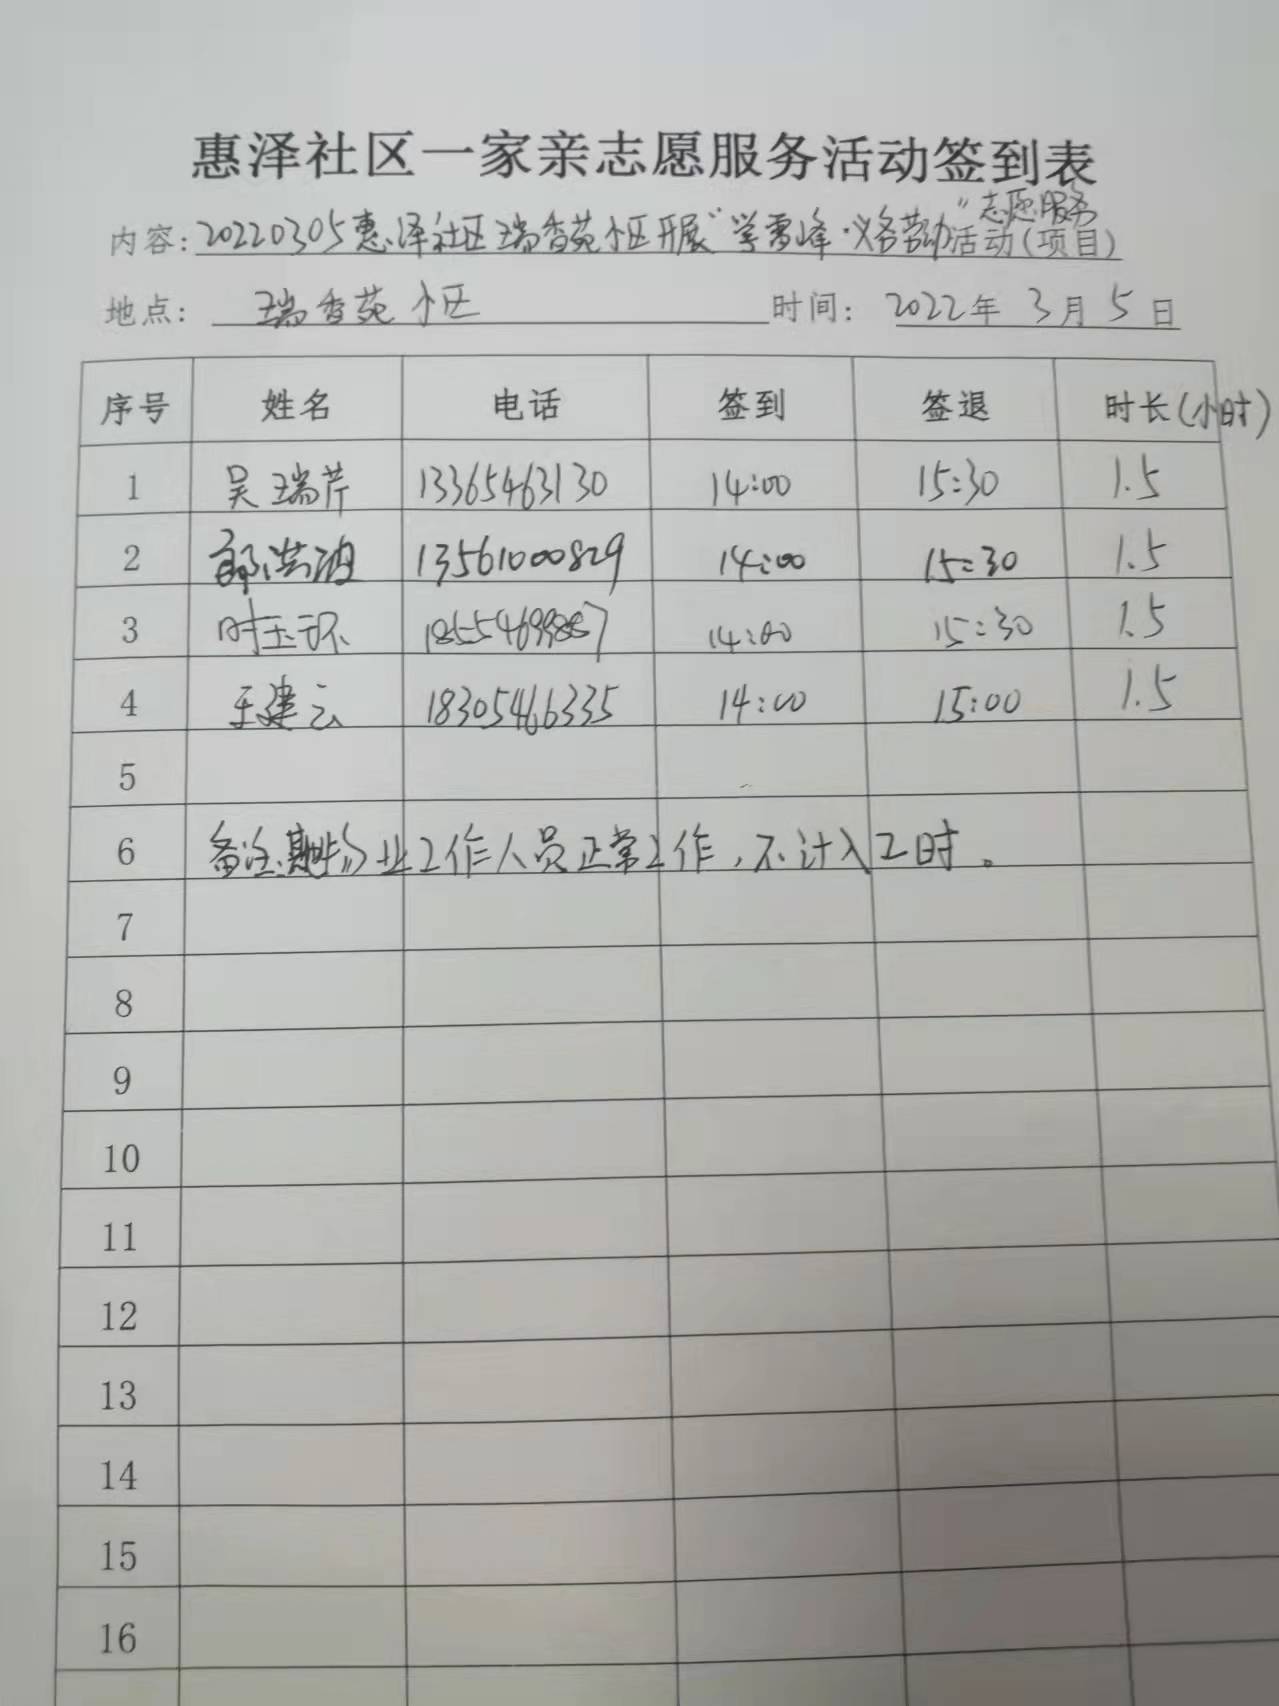 惠泽社区一家亲志愿服务活动签到表
内容:20220305惠泽社区瑞香苑小区开展"学雷峰·义务劳动"志愿服务活动(项目)
地点: 瑞香苑小区 时间: 2022年 3月 5日
序号 姓名 电话 签到 签退 时长(小时)
1 吴瑞芹 13365463130 14:00 15:30 1.5
2 13561000829 14:00 15:30 1.5
3 时玉环 14:00 15:30 1.5
4 王建云 18305466335 14:00 15:00 1.5
5
6 备注: 物业工作人员正常工作,不计入工时。
7
8
9
10
11
12
13
14
15
16